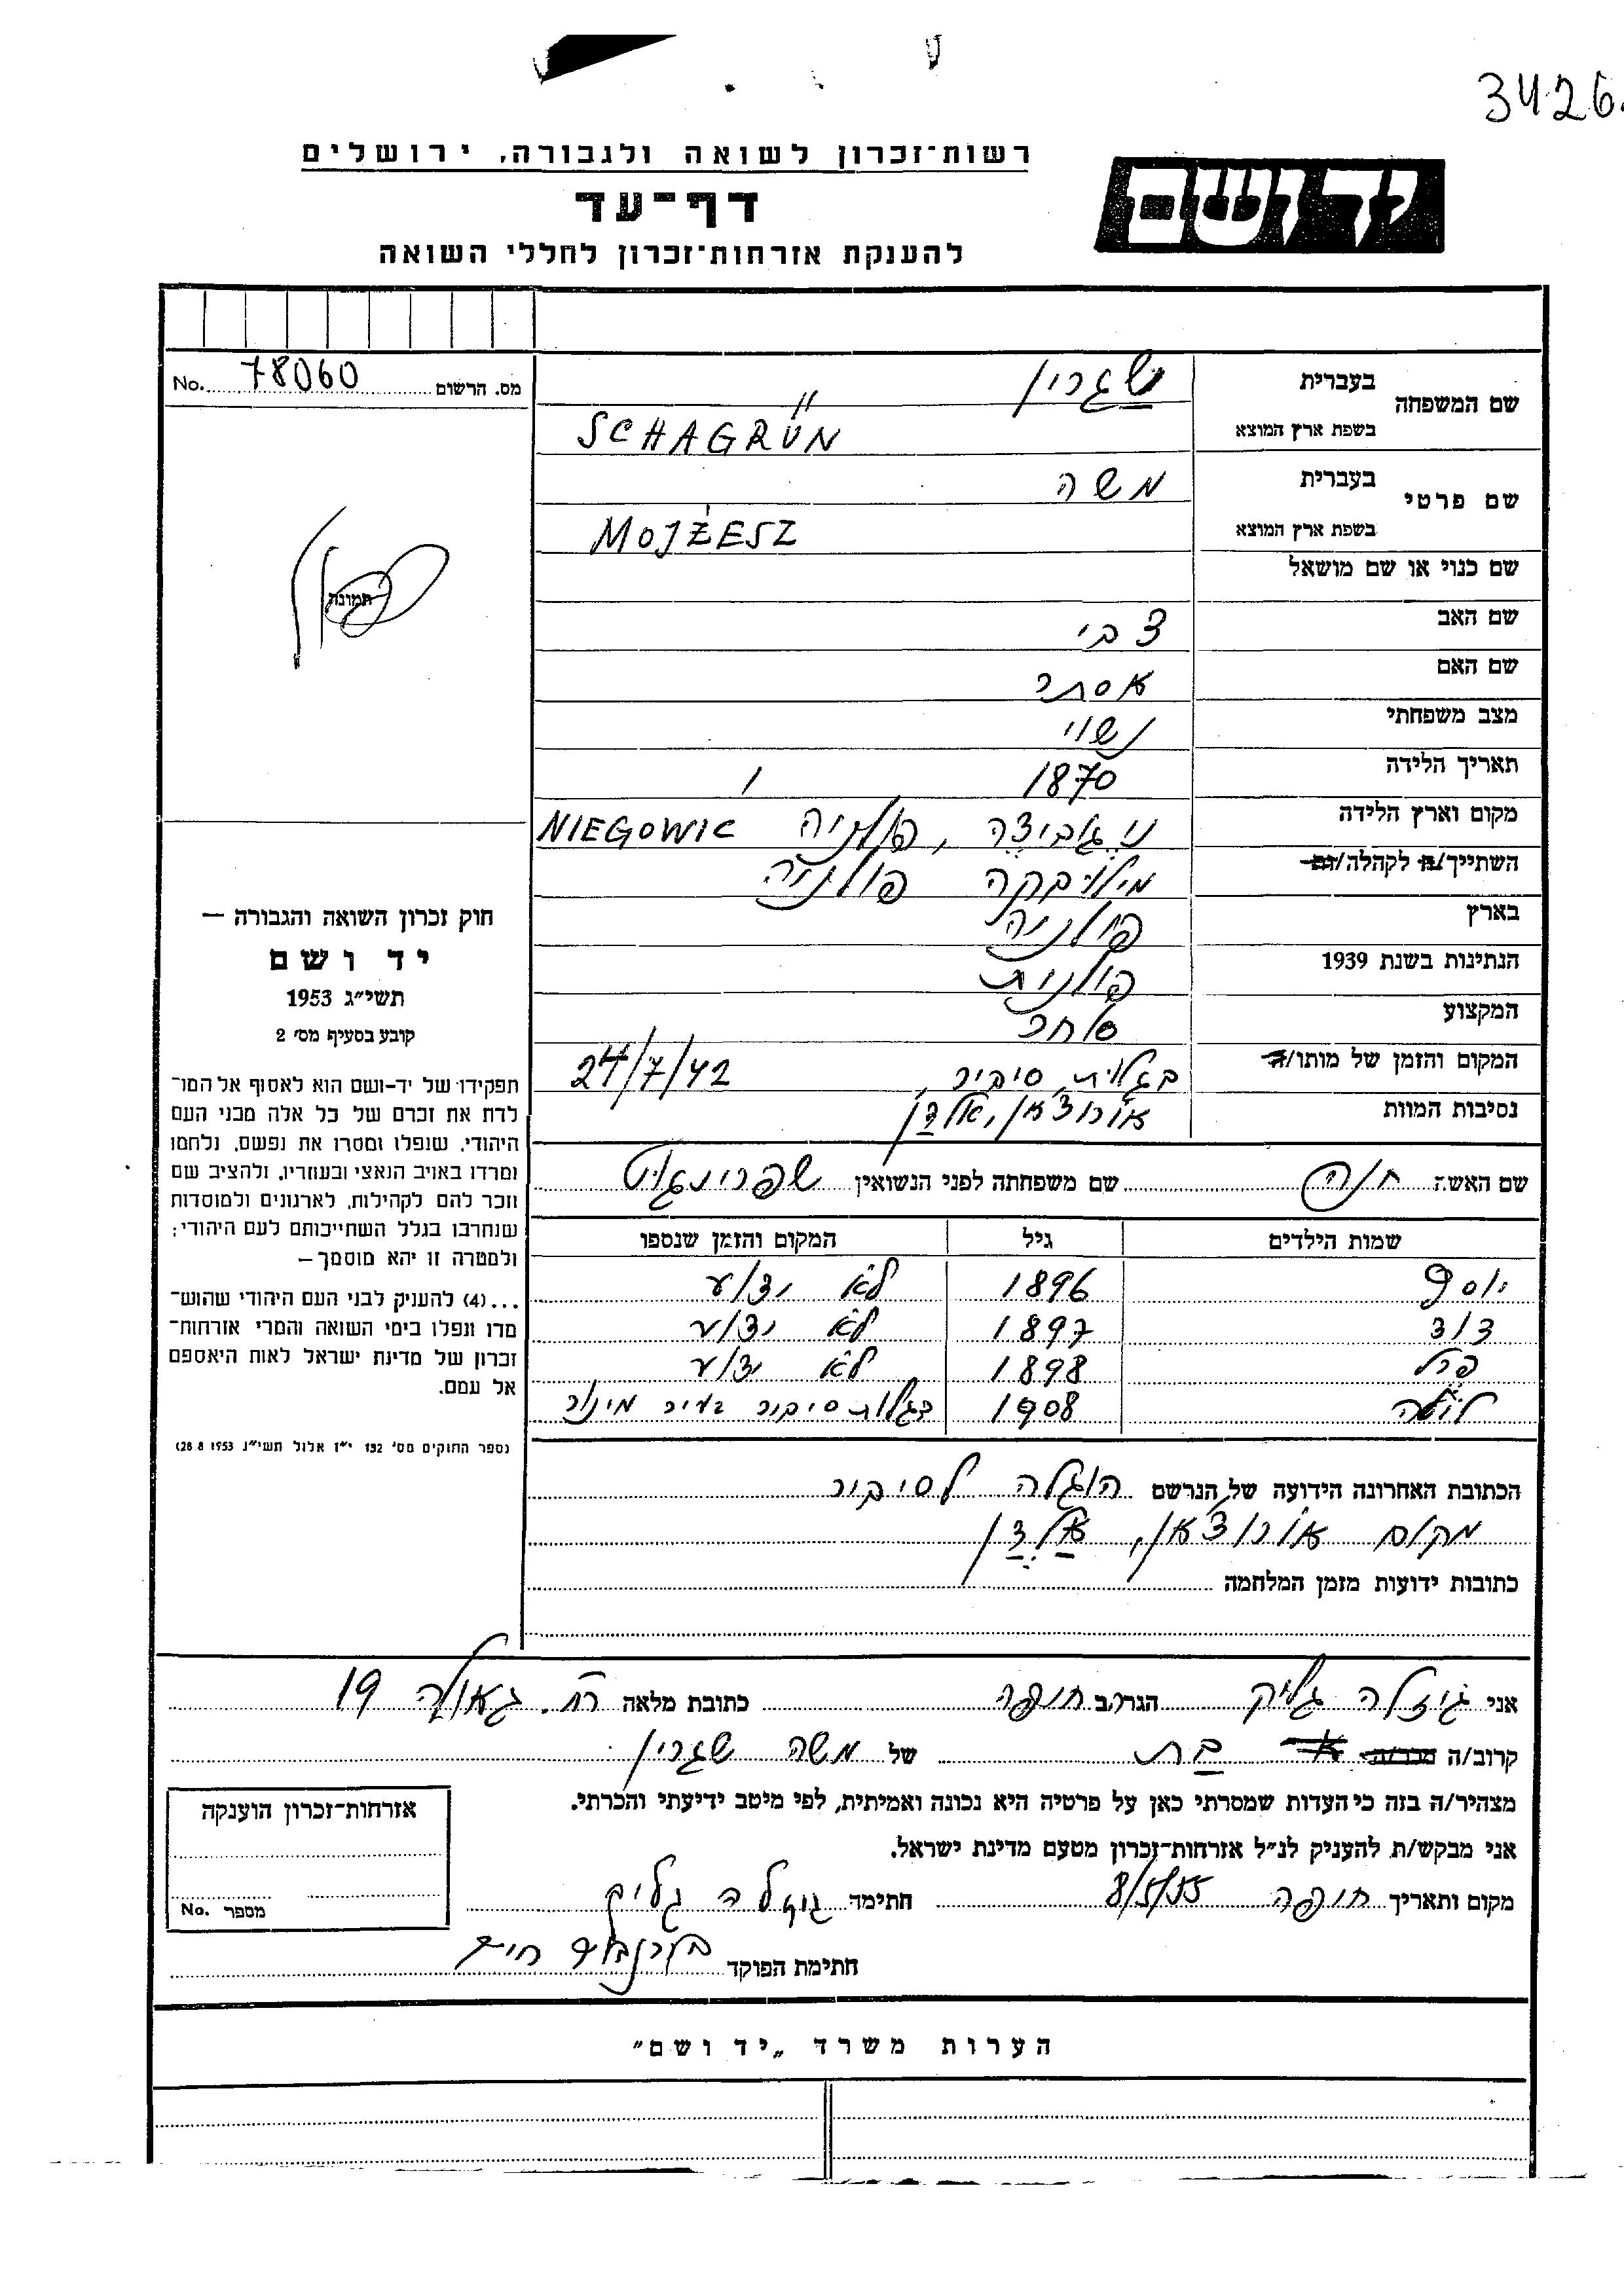 3426.
רשות־זכרון לשואה ולגבורה, ירושלים
יד ושם
דף־עד
להענקת אזרחות־זכרון לחללי השואה
מס. הרשום 78060 No.
שם המשפחה
בעברית שגרין
בשפת ארץ המוצא SCHAGRÜN
שם פרטי
בעברית משה
בשפת ארץ המוצא MOJŻESZ
שם כנוי או שם מושאל
שם האב צבי
שם האם אסתר
מצב משפחתי נשוי
תאריך הלידה 1870
מקום וארץ הלידה פולניה NIEGOWIC
השתייך/ה לקהלה פולניה
בארץ פולניה
הנתינות בשנת 1939 פולנית
המקצוע סוחר
המקום והזמן של מותו/ה בגלות, סיביר, 24/7/42
נסיבות המוות
שם האשה חנה שם משפחתה לפני הנשואין
שמות הילדים גיל המקום והזמן שנספו
יוסף 1896 לא ידוע
דוד 1897 לא ידוע
פרל 1898 לא ידוע
1908 בגלות סיביר בעיר
הכתובת האחרונה הידועה של הנרשם הוגלה לסיביר
מקום
כתובות ידועות מזמן המלחמה
תמונה
חוק זכרון השואה והגבורה —
יד ושם
תשי״ג 1953
קובע בסעיף מס׳ 2
תפקידו של יד־ושם הוא לאסוף אל המו־
לדת את זכרם של כל אלה מבני העם
היהודי, שנפלו ומסרו את נפשם, נלחמו
ומרדו באויב הנאצי ובעוזריו, ולהציב שם
וזכר להם לקהילות, לארגונים ולמוסדות
שנחרבו בגלל השתייכותם לעם היהודי;
ולמטרה זו יהא מוסמך—
...(4) להענק לבני העם היהודי שהוש־
מדו ונפלו בימי השואה והמרי אזרחות־
זכרון של מדינת ישראל לאות היאספם
אל עמם.
(ספר החוקים מס׳ 132 י״ז אלול תשי״ג 28.8.1953)
אני גיזלה גליק הגר/ה ב חיפה כתובת מלאה רח. גאולה 19
קרוב/ה בת של משה שגרין
מצהיר/ה בזה כי העדות שמסרתי כאן על פרטיה היא נכונה ואמיתית, לפי מיטב ידיעתי והכרתי.
אני מבקש/ת להעניק לנ״ל אזרחות־זכרון מטעם מדינת ישראל.
מקום ותאריך חיפה 8/5/55 חתימה גיזלה גליק
חתימת הפוקד
אזרחות־זכרון הוענקה
מספר No.
הערות משרד „יד ושם״